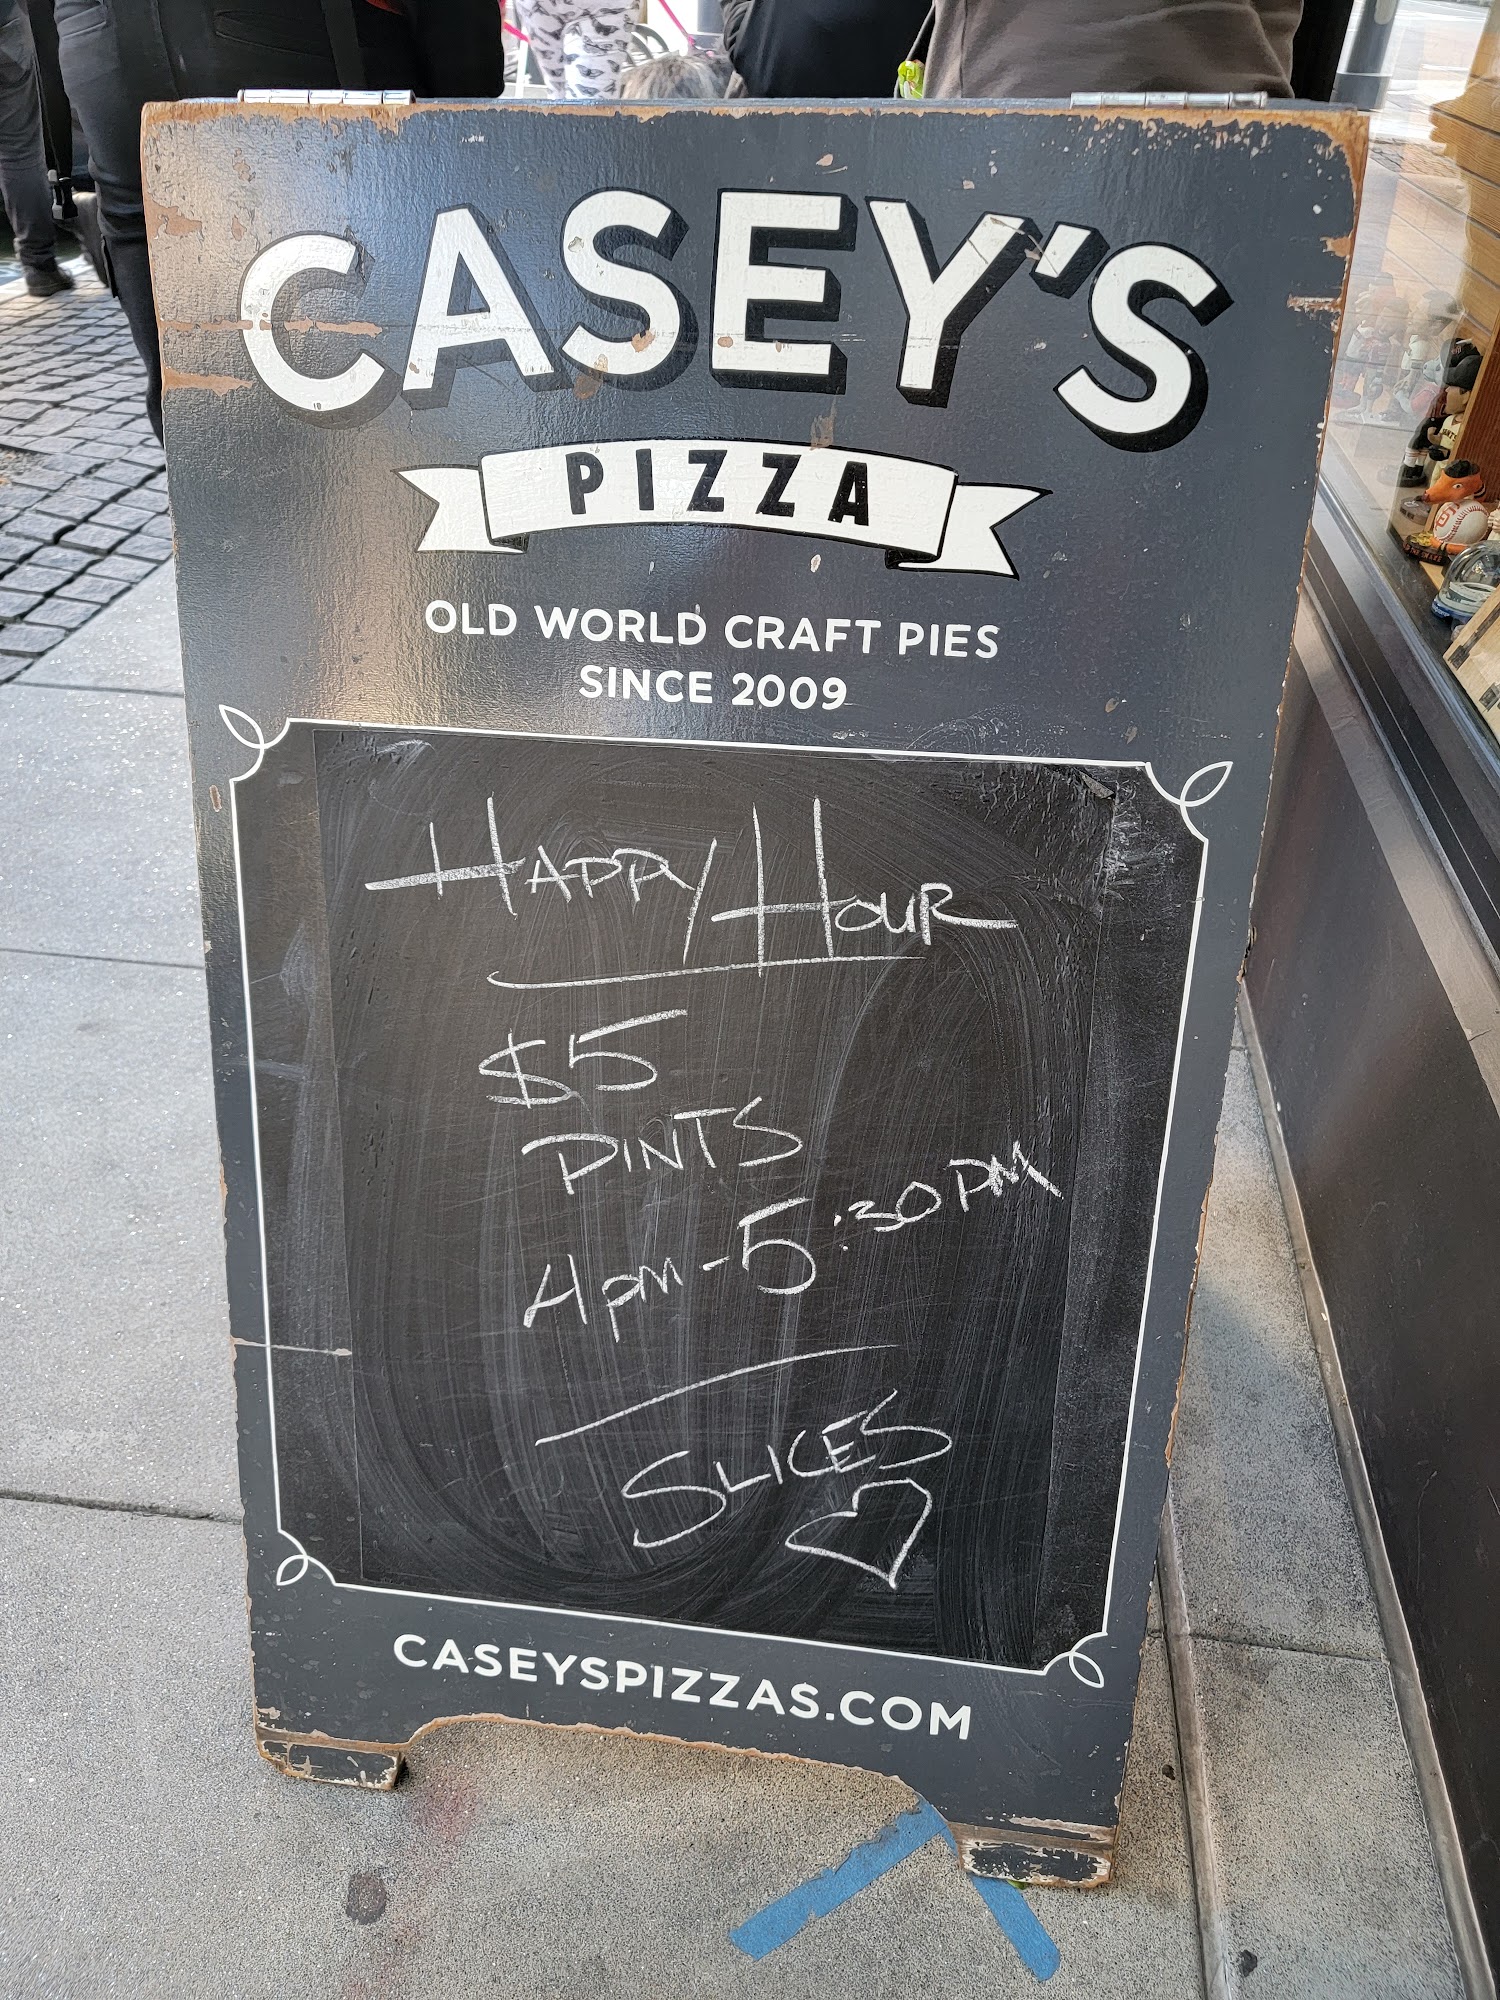 CASEY'S
PIZZA
OLD WORLD CRAFT PIES
SINCE 2009
HAPPY HOUR
$5
PINTS
4PM-5:30PM
SLICES
CASEYSPIZZAS.COM